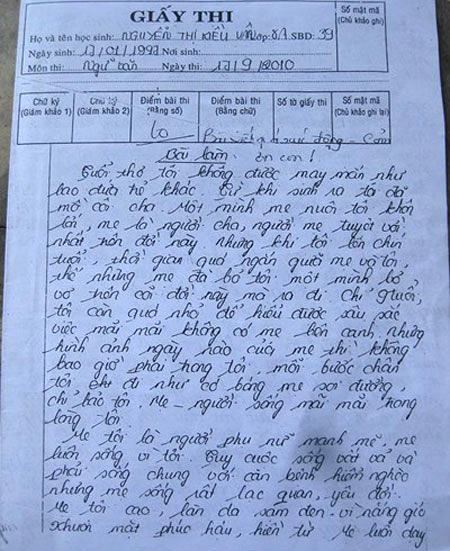 GIẤY THI
Số mật mã
(Chủ khảo ghi)
Họ và tên học sinh: NGUYỄN THỊ KIỀU VÂN Lớp: 8A SBD: 39
Ngày sinh: 17/01/1997 Nơi sinh:
Môn thi: Ngữ văn Ngày thi: 17/9/2010
Chữ ký (Giám khảo 1)
Chữ ký (Giám khảo 2)
Điểm bài thi (Bằng số)
Điểm bài thi (Bằng chữ)
Số tờ giấy thi
Số mật mã (Chủ khảo ghi lại)
10 Bài viết quá xúc động - Cảm
Bài làm. ơn con!
Tuổi thơ tôi không được may mắn như
bao đứa trẻ khác. Từ khi sinh ra tôi đã
mồ côi cha. Một mình mẹ nuôi tôi khôn
lớn, mẹ là người cha, người mẹ tuyệt vời
nhất trên đời này nhưng khi tôi lên chín
tuổi, thời gian quá ngắn giữa mẹ và tôi,
thế nhưng mẹ đã bỏ tôi một mình bơ
vơ trên cõi đời này mà ra đi. Chỉ 9 tuổi,
tôi còn quá nhỏ để hiểu được sâu sắc
việc mãi mãi không có mẹ bên cạnh, nhưng
hình ảnh ngày nào của mẹ thì không
bao giờ phai trong tôi, mỗi bước chân
tôi khi đi như có bóng mẹ soi đường,
chỉ bảo tôi. Mẹ - người sống mãi mãi trong
lòng tôi.
Mẹ tôi là người phụ nữ mạnh mẽ, mẹ
luôn sống vì tôi. Tuy cuộc sống vất vả và
phải sống chung với căn bệnh hiểm nghèo
nhưng mẹ sống rất lạc quan, yêu đời.
Mẹ tôi cao, làn da sạm đen vì nắng gió
khuôn mặt phúc hậu, hiền từ. Mẹ luôn dạy